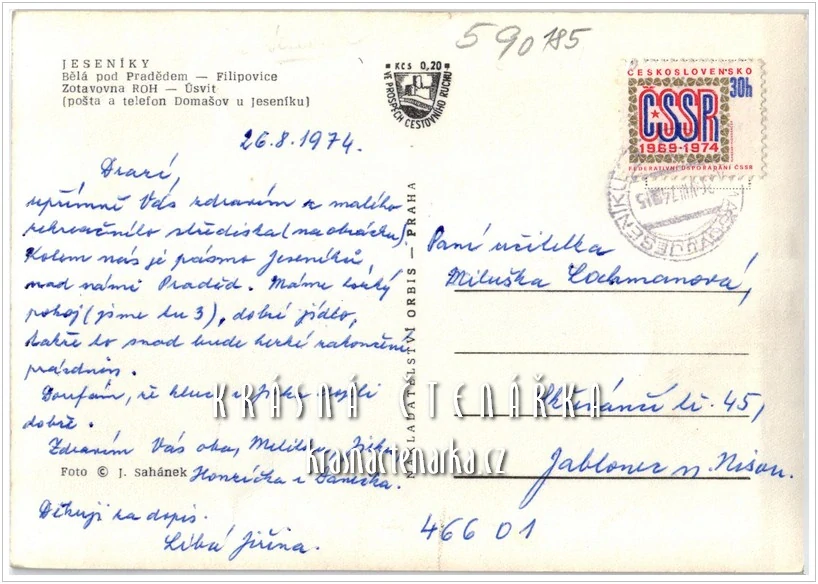 590185
JESENÍKY
Bělá pod Pradědem — Filipovice
Zotavovna ROH — Úsvit
(pošta a telefon Domašov u Jeseníku)
Kčs 0,20
VE PROSPĚCH CESTOVNÍHO RUCHU
ČESKOSLOVENSKO
30h
ČSSR
1969-1974
FEDERATIVNÍ USPOŘÁDÁNÍ ČSSR
26.8.1974.
Drazí,
upřímně Vás zdravím z malého
rekreačního střediska (na obrázku).
Kolem nás je pásmo Jeseníků
nad námi Praděd. Máme hezký
pokoj (jsme tu 3), dobré jídlo,
takže to snad bude hezké zakončení
prázdnin.
Doufám, že kluci
dobře.
Zdravím Vás oba,
Honzíčka i
Děkuji za dopis.
Libá Jiřina.
Foto © J. Sahánek
NAKLADATELSTVÍ ORBIS — PRAHA
Paní učitelka
Miluška Lochmanová,
č. 45,
Jablonec n. Nisou.
466 01
KRÁSNÁ ČTENÁŘKA
krasnactenarka.cz